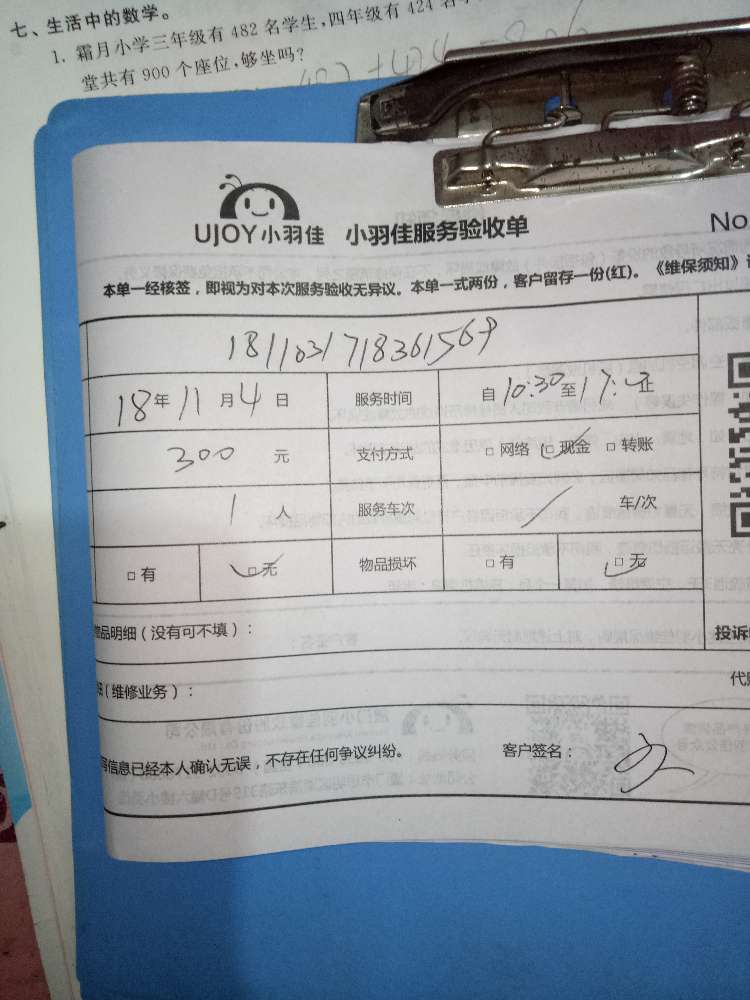 七、生活中的数学。
1. 霜月小学三年级有 482 名学生,四年级有 424 名
堂共有 900 个座位,够坐吗?
UJOY小羽佳 小羽佳服务验收单 No
本单一经核签,即视为对本次服务验收无异议。本单一式两份,客户留存一份(红)。《维保须知》
1811031718361569
18年11月4日 服务时间 自10:30至17:00止
300元 支付方式 □网络 ☑现金 □转账
1人 服务车次 / 车/次
□有 ☑无 物品损坏 □有 ☑无
品明细(没有可不填): 投诉
(维修业务): 代
信息已经本人确认无误,不存在任何争议纠纷。 客户签名: